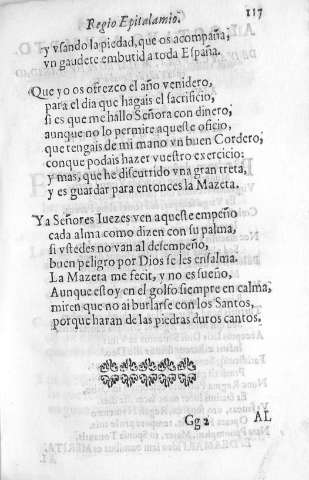 Regio Epitalamio. 117
y vsando la piedad, que os acompaña,
vn gaudete embutid a toda España.
Que yo os ofrezco el año venidero,
para el dia que hagais el sacrificio,
si es que me hallo Señora con dinero,
aunque no lo permite aqueste oficio,
que tengais de mi mano vn buen Cordero,
conque podais hazer vuestro exercicio:
y mas, que he discutrido vna gran treta,
y es guardar para entonces la Mazeta.
Ya Señores Iuezes ven aqueste empeño
cada alma como dizen con su palma,
si vstedes no van al desempeño,
buen peligro por Dios se les ensalma.
La Mazeta me fecit, y no es sueño,
Aunque estoy en el golfo siempre en calma,
miren que no ai burlarse con los Santos,
porque haran de las piedras duros cantos.
Gg 2 AL